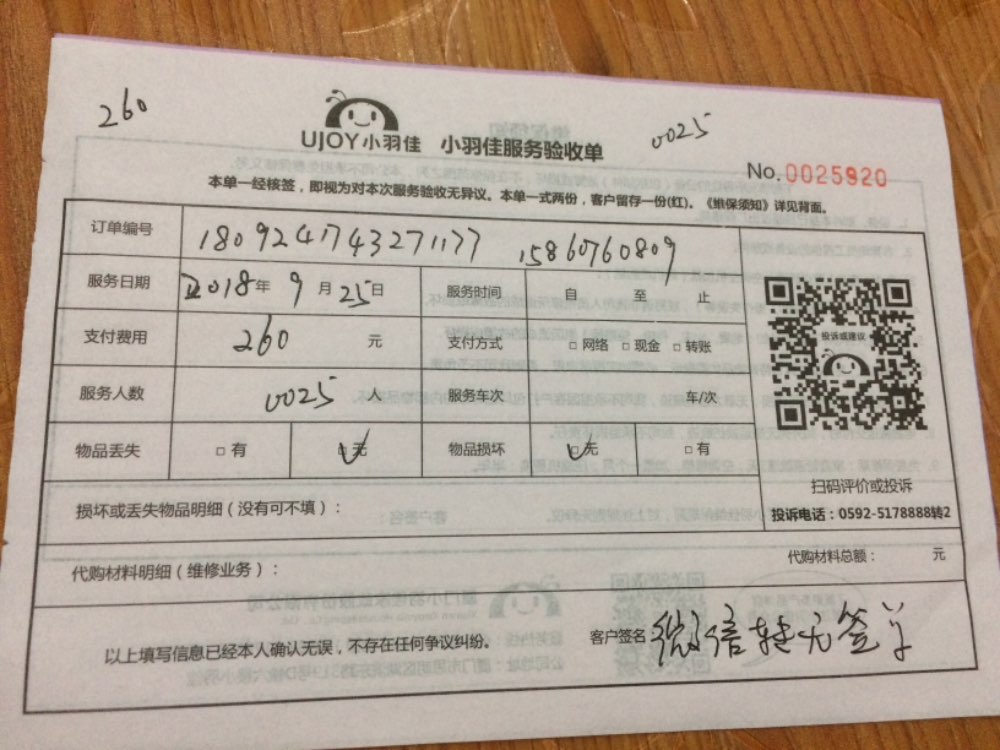 260
UJOY小羽佳 小羽佳服务验收单
0025
No.0025920
本单一经核签，即视为对本次服务验收无异议。本单一式两份，客户留存一份(红)。《维保须知》详见背面。
订单编号 180924743271177 15860760809
服务日期 2018年 9月 25日 服务时间 自 至 止
支付费用 260 元 支付方式 □ 网络 □ 现金 □ 转账
服务人数 0025 人 服务车次 车/次
物品丢失 □ 有 □ 无 物品损坏 □ 无 □ 有
投诉或建议
扫码评价或投诉
投诉电话：0592-5178888转2
损坏或丢失物品明细（没有可不填）：
代购材料明细（维修业务）： 代购材料总额： 元
以上填写信息已经本人确认无误，不存在任何争议纠纷。 客户签名 微信转无签字